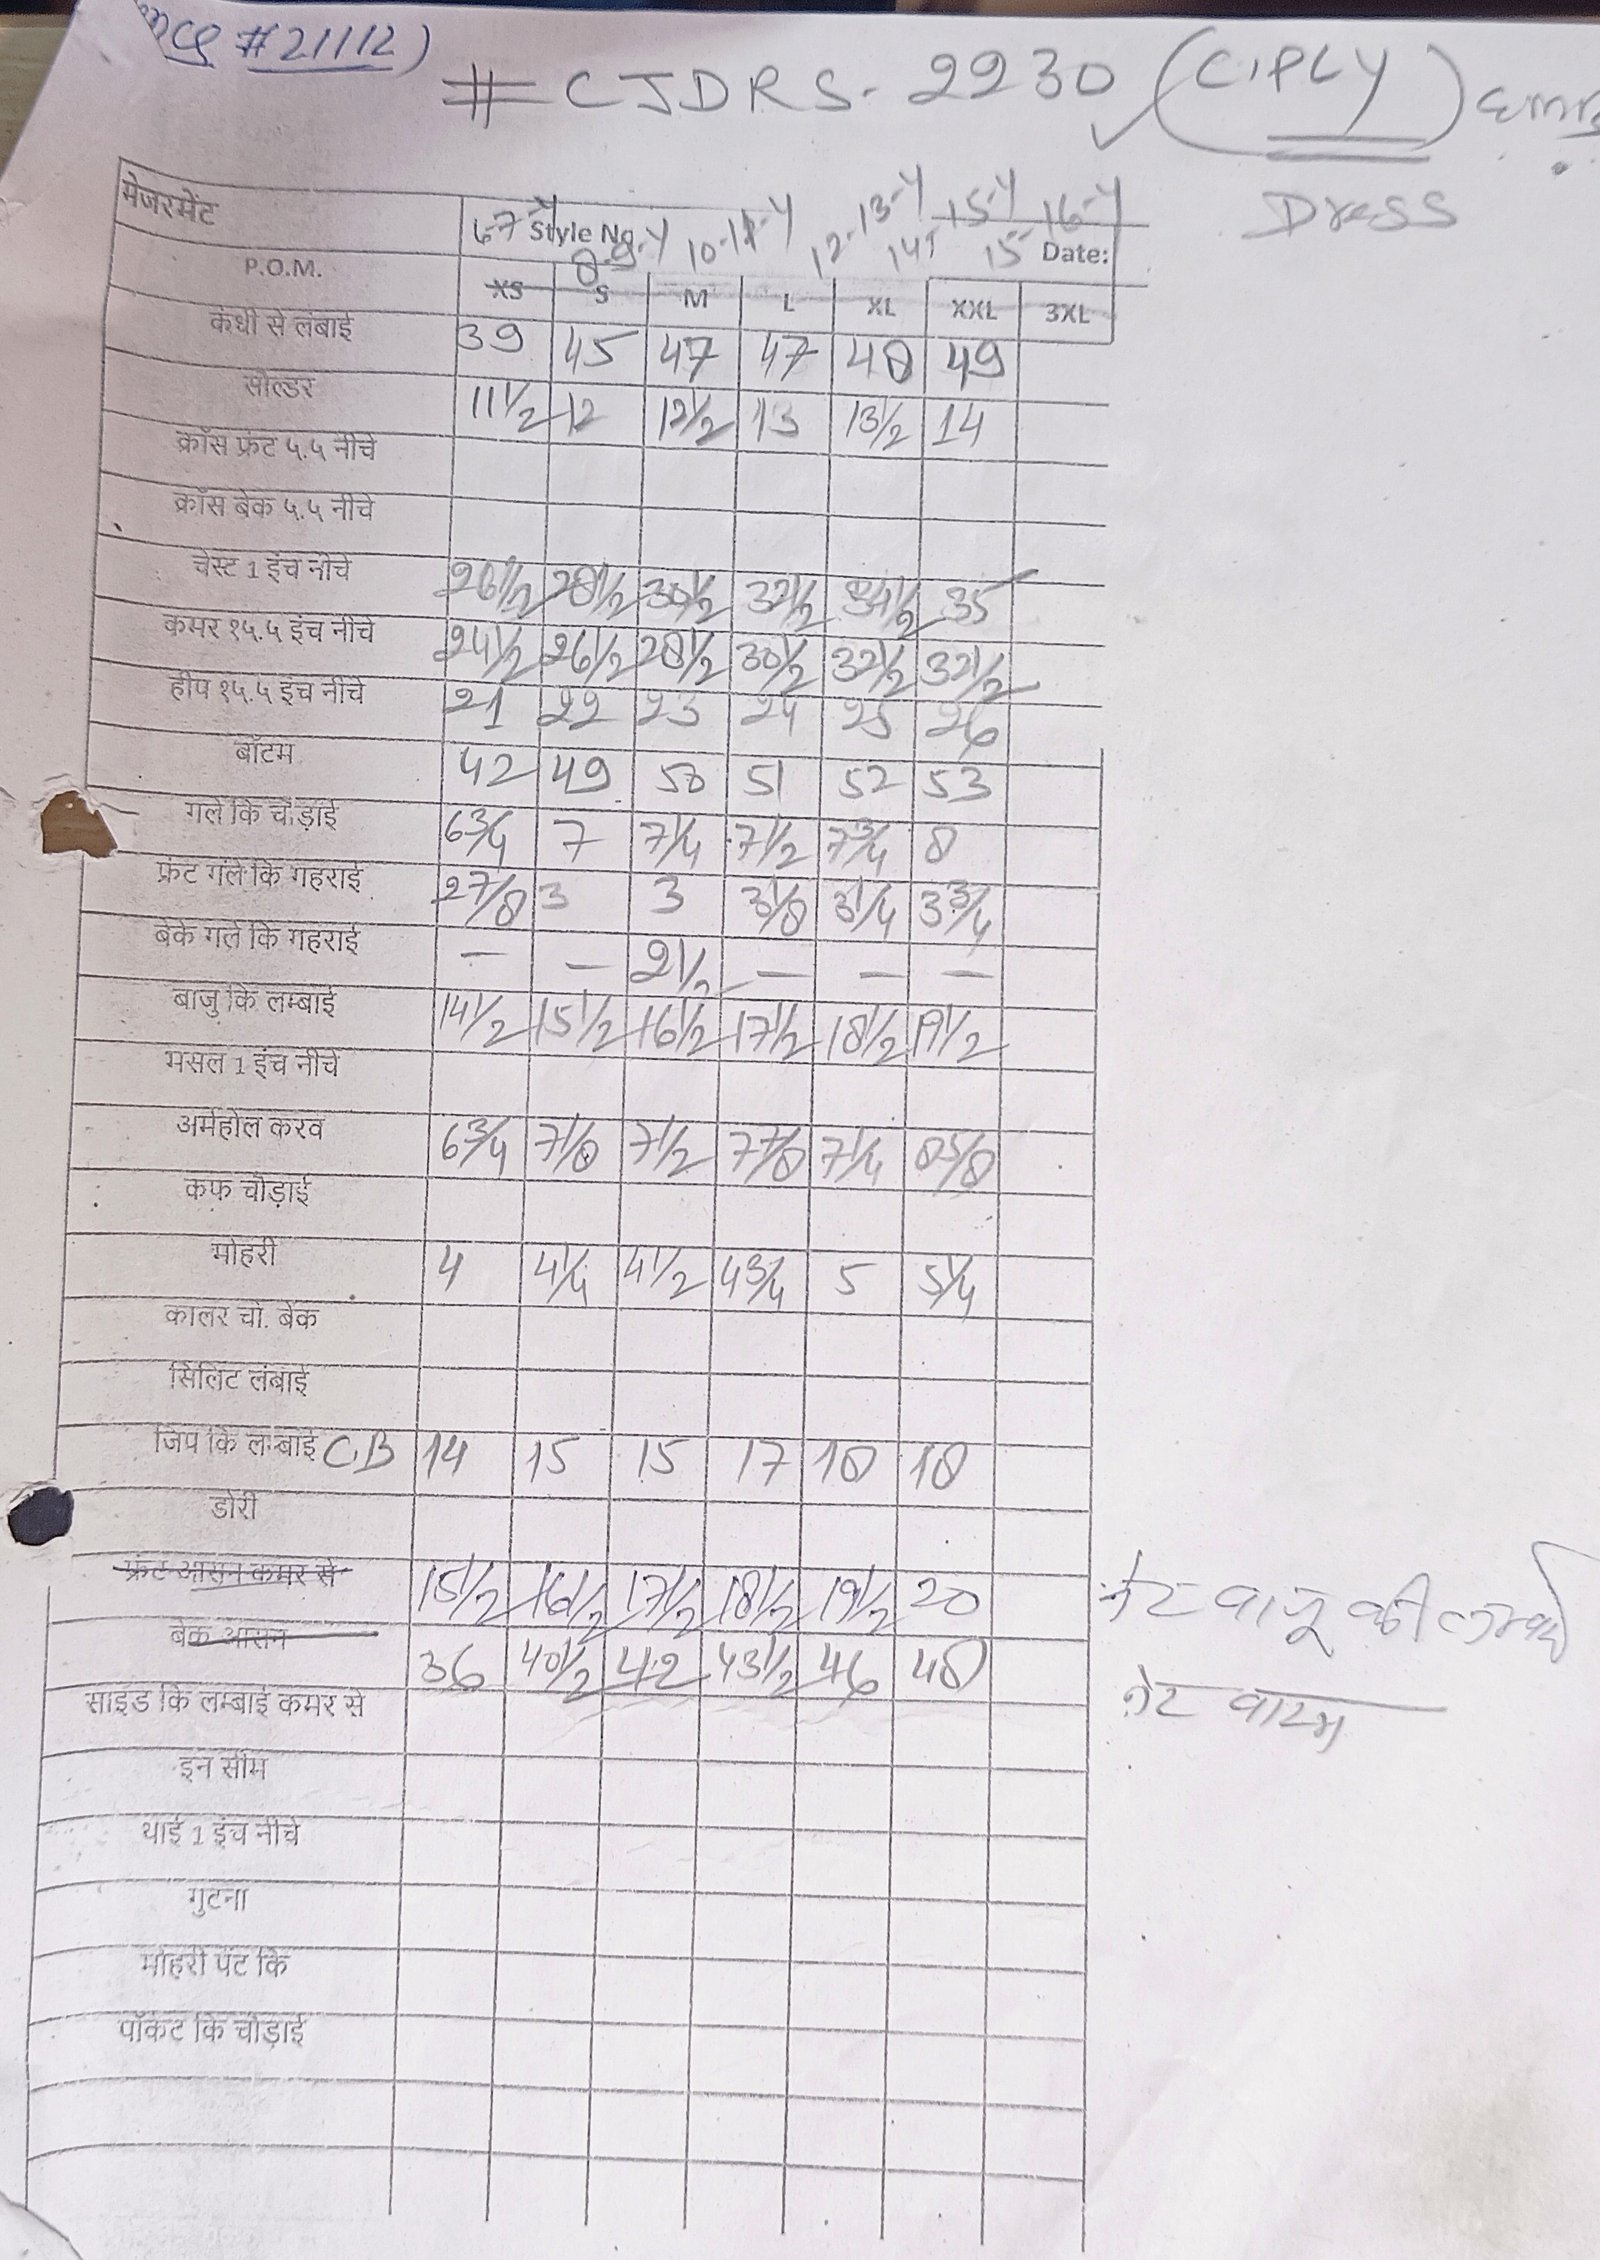 #21112)
# CJDRS-2230 (C.PLY)
Dress
मेजरमेंट 6-7 Y Style No 8-9-Y 10-11-Y 12-13-Y 14-15-Y 15-16-Y Date:
P.O.M. XS S M L XL XXL 3XL
कंधी से लंबाई 39 45 47 47 48 49
सोल्डर 11 1/2 12 12 1/2 13 13 1/2 14
क्रॉस फ्रंट ५.५ नीचे
क्रॉस बेक ५.५ नीचे
चेस्ट 1 इंच नीचे 26 1/2 28 1/2 30 1/2 32 1/2 34 1/2 35
कमर १५.५ इंच नीचे 24 1/2 26 1/2 28 1/2 30 1/2 32 1/2 32 1/2
हीप १५.५ इंच नीचे 21 22 23 24 25 26
बॉटम 42 49 50 51 52 53
गले कि चोड़ाई 6 3/4 7 7 1/4 7 1/2 7 3/4 8
फ्रंट गले कि गहराई 2 7/8 3 3 3 1/8 3 1/4 3 3/4
बेक गले कि गहराई — — 2 1/2 — — —
बाजु कि लम्बाई 14 1/2 15 1/2 16 1/2 17 1/2 18 1/2 19 1/2
मसल 1 इंच नीचे
अर्महोल करव 6 3/4 7 1/8 7 1/2 7 7/8 7 1/4 8 5/8
कफ चोड़ाई
मोहरी 4 4 1/4 4 1/2 4 3/4 5 5 1/4
कालर चो. बेक
सिलिट लंबाई
जिप कि लम्बाई C.B 14 15 15 17 18 18
डोरी
फ्रंट आसन कमर से 15 1/2 16 1/2 17 1/2 18 1/2 19 1/2 20 नेट बाजू की लम्बाई
बेक आसन 36 40 1/2 42 43 1/2 46 48 नेट बाटम
साइड कि लम्बाई कमर से
इन सीम
थाई 1 इंच नीचे
गुटना
मोहरी पेंट कि
पॉकेट कि चोड़ाई